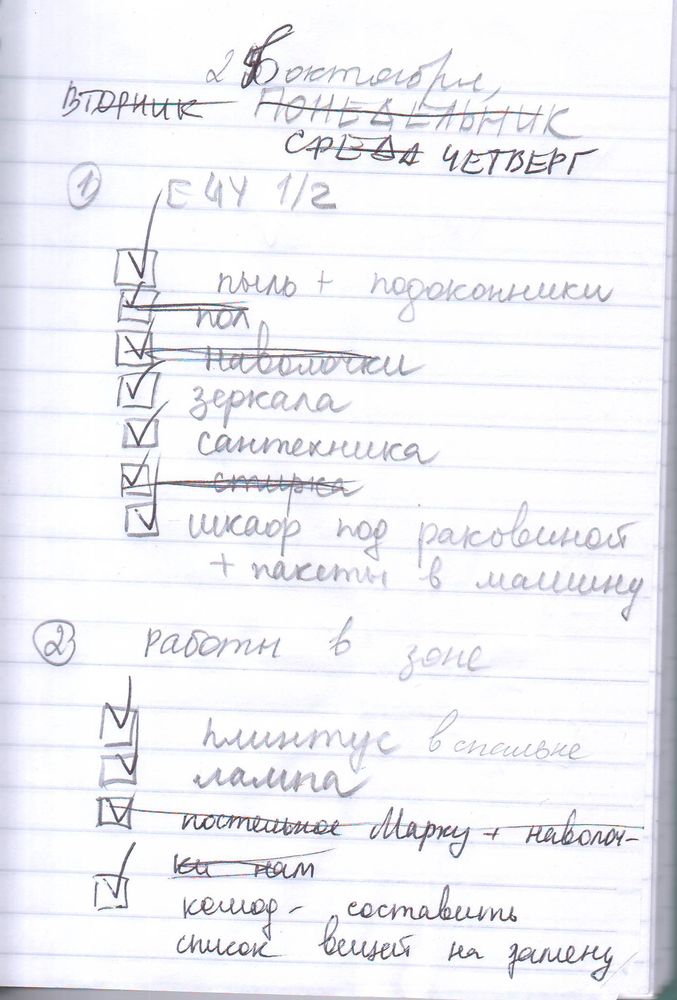 октября,
ВТОРНИК ПОНЕДЕЛЬНИК
СРЕДА ЧЕТВЕРГ
1) ЕЧУ 1/2
пыль + подоконники
пол
наволочки
зеркала
сантехника
стирка
шкаф под раковиной
+ пакеты в машину
2) работы в зоне
плинтус в спальне
лампа
постельное Марку + наволоч-
ки нам
комод - составить
список вещей на замену